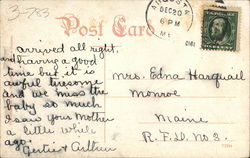 2-783
Post Card
AUGUSTA
DEC 20
6 PM
ME.
arrived all right,
and having a good
time but it is
awful tiresome
as we miss the
baby so much
I saw your Mother
a little while
ago.
Gertie & Arthur
Mrs. Edna Harquail
Monroe
Maine
R.F.D. No. 2.